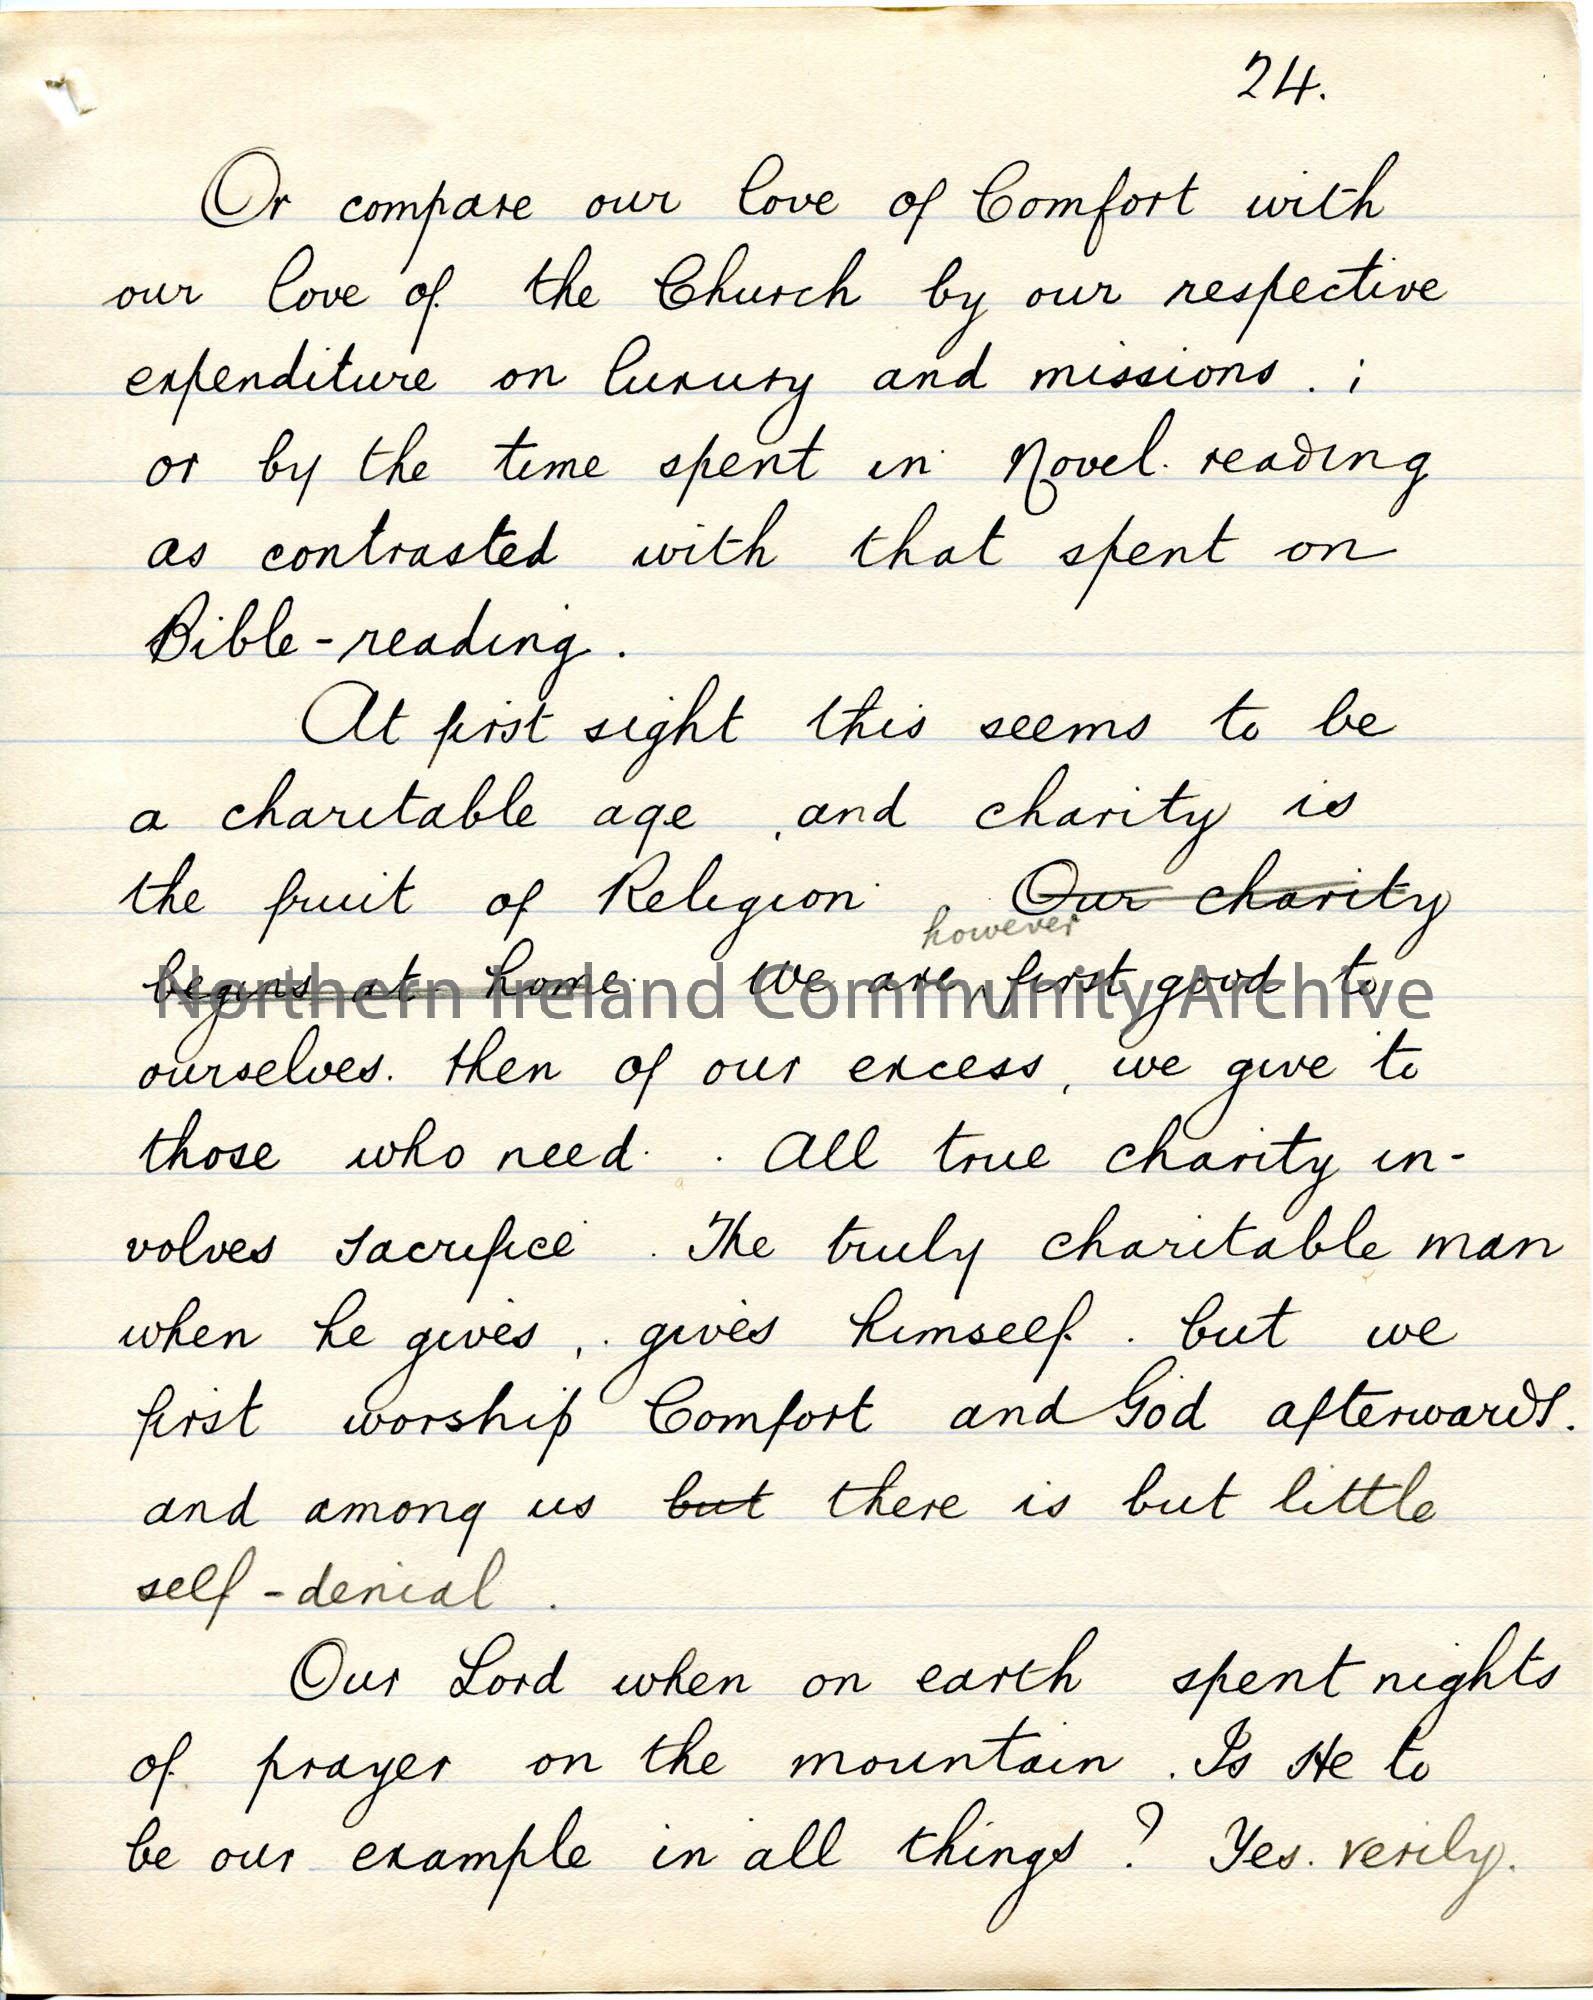 24.
Or compare our love of Comfort with
our love of the Church by our respective
expenditure on luxury and missions . ;
or by the time spent in Novel reading
as contrasted with that spent on
Bible-reading.
At first sight this seems to be
a charitable age , and charity is
the fruit of Religion . Our charity
however
begins at home. We are first good to
Northern Ireland Community Archive
ourselves. then of our excess, we give to
those who need . All true charity in-
volves sacrifice . The truly charitable man
when he gives, gives himself . but we
first worship Comfort and God afterwards.
and among us but there is but little
self-denial .
Our Lord when on earth spent nights
of prayer on the mountain . Is He to
be our example in all things ? Yes. verily.